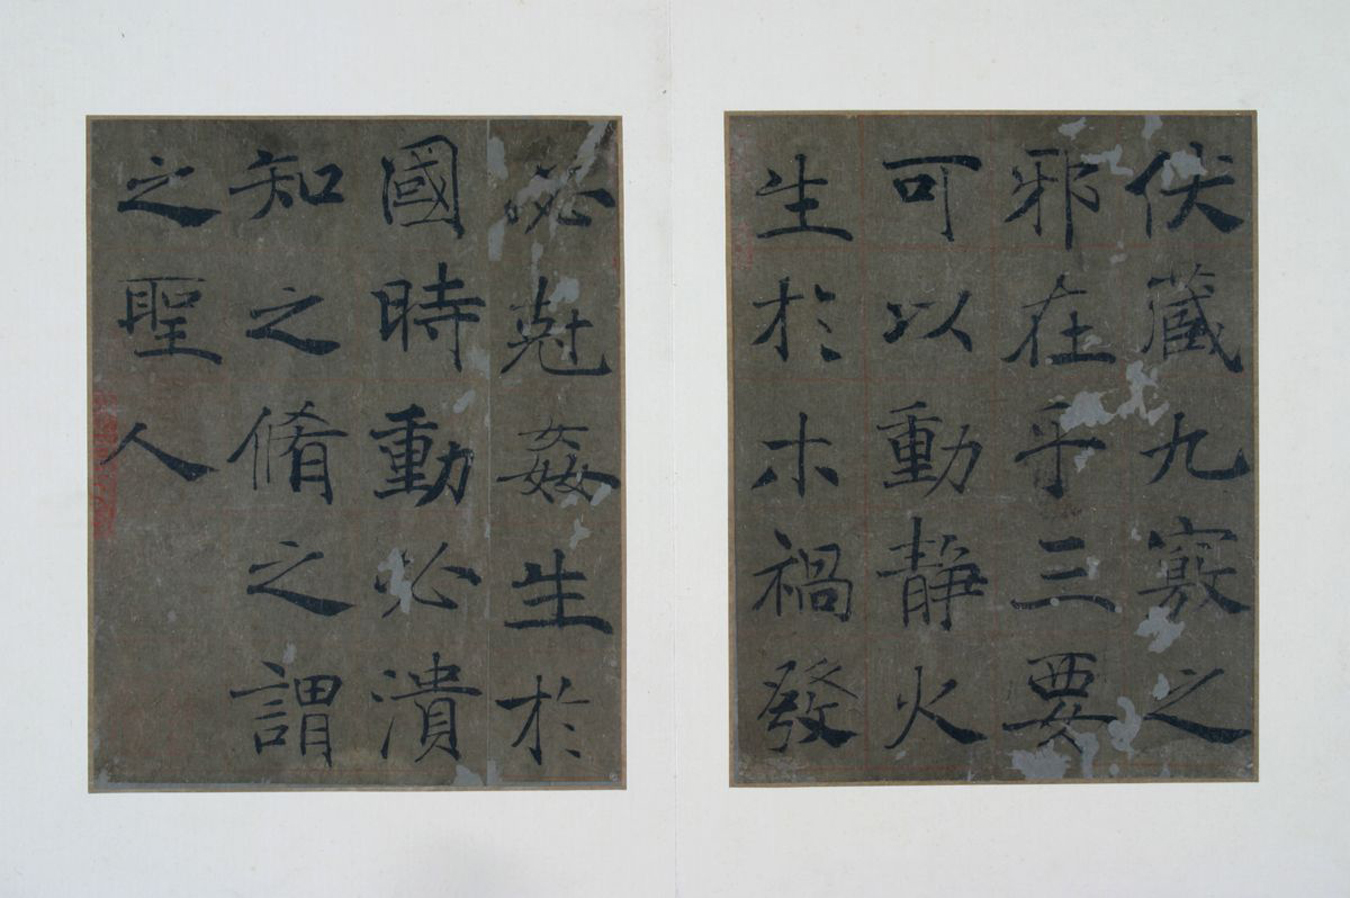 伏藏九竅之
邪在乎三要
可以動靜火
生於木禍發
必尅姦生於
國時動必潰
知之脩之謂
之聖人